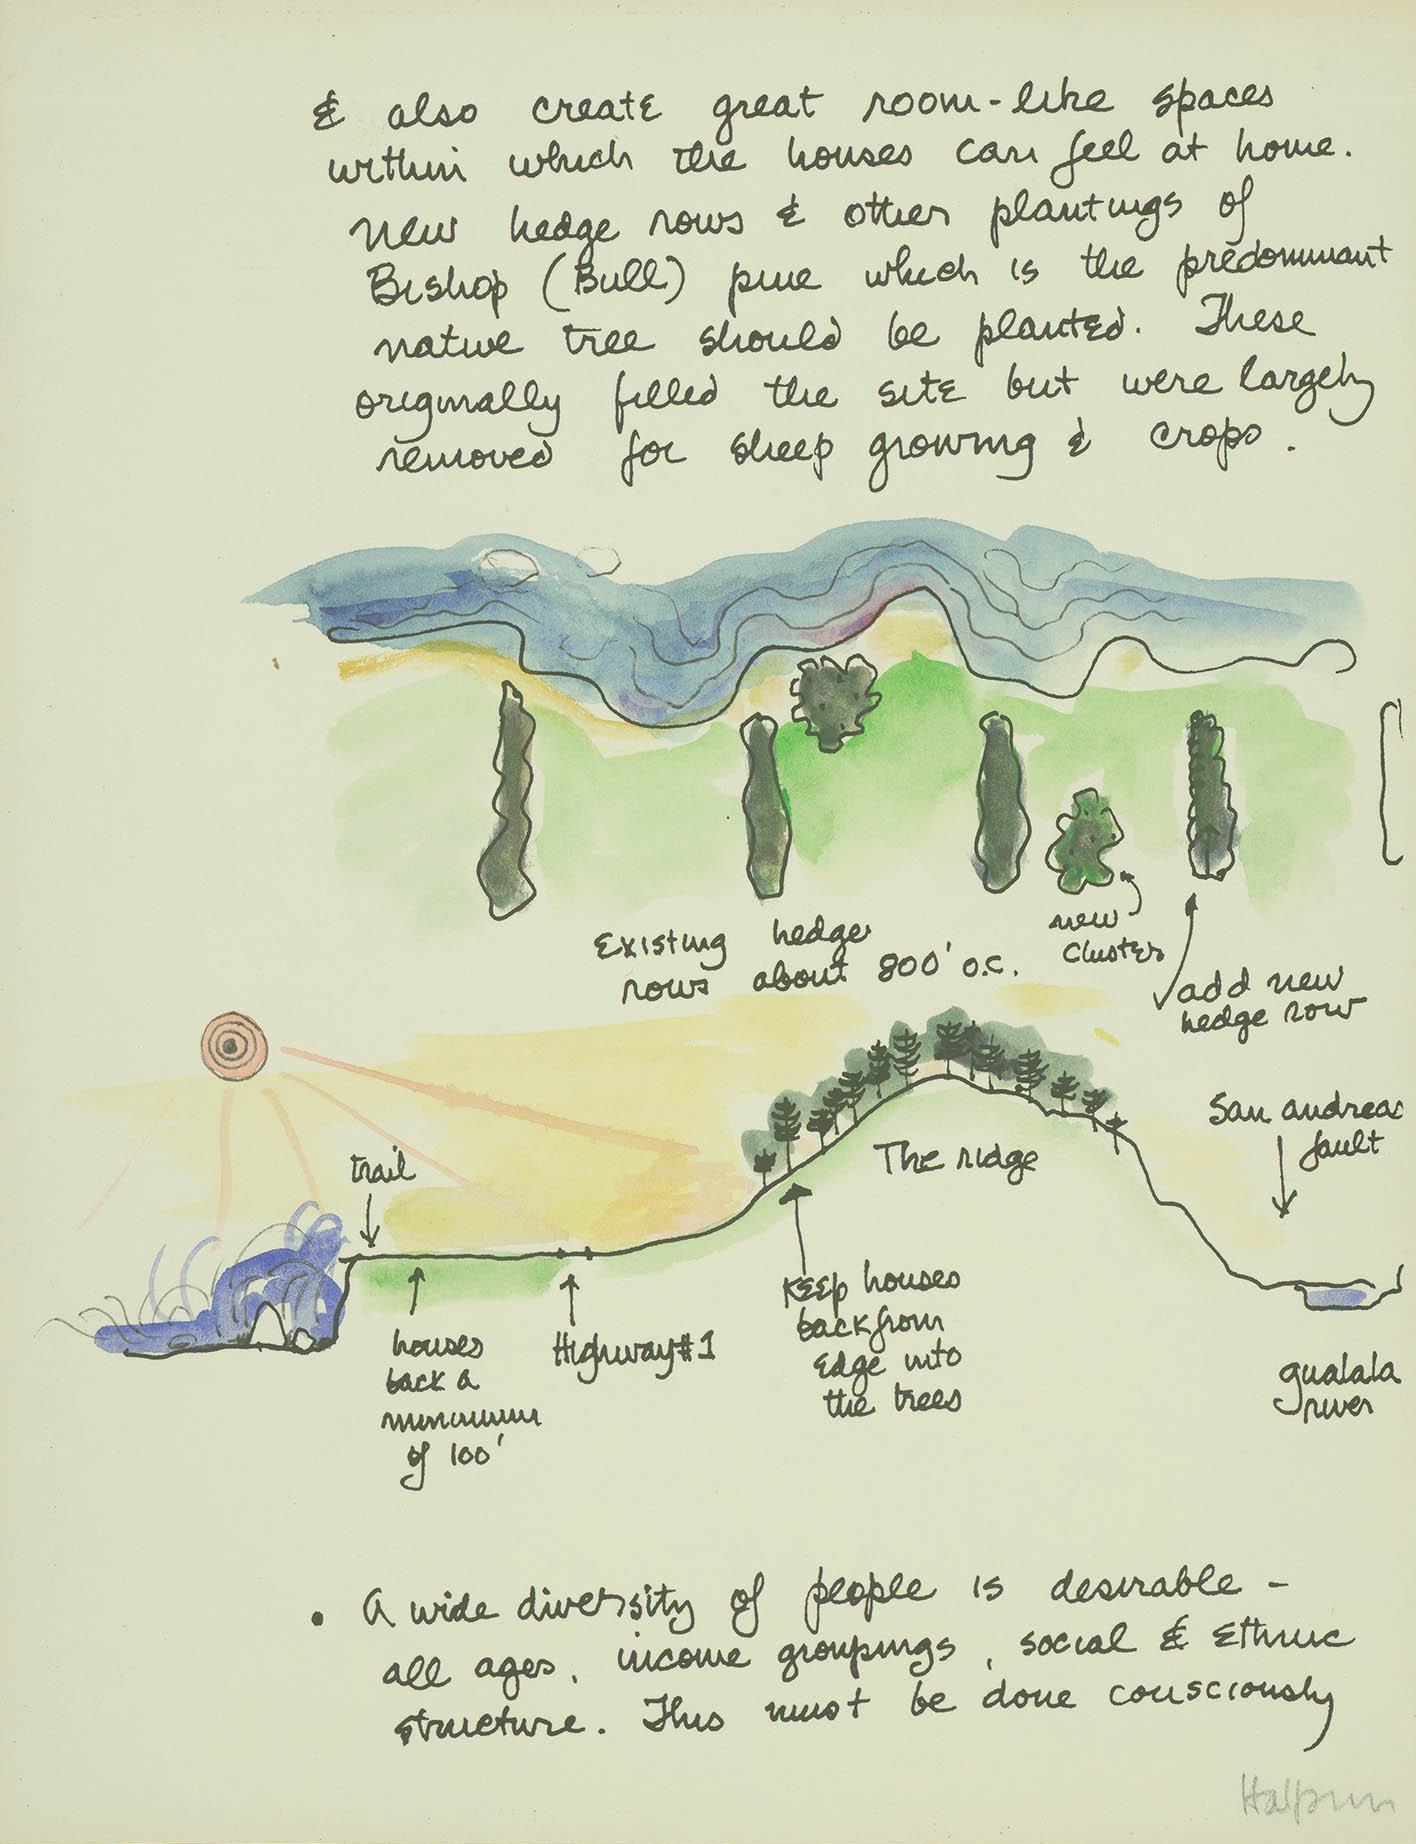 & also create great room-like spaces
within which the houses can feel at home.
New hedge rows & other plantings of
Bishop (Bull) pine which is the predominant
native tree should be planted. These
originally filled the site but were largely
removed for sheep growing & crops.
Existing hedge
rows about 800' o.c.
new
cluster
add new
hedge row
San andreas
fault
trail
The ridge
houses
back a
minimum
of 100'
Highway #1
Keep houses
back from
edge into
the trees
gualala
river
• A wide diversity of people is desirable -
all ages, income groupings, social & ethnic
structure. This must be done consciously
Halprin